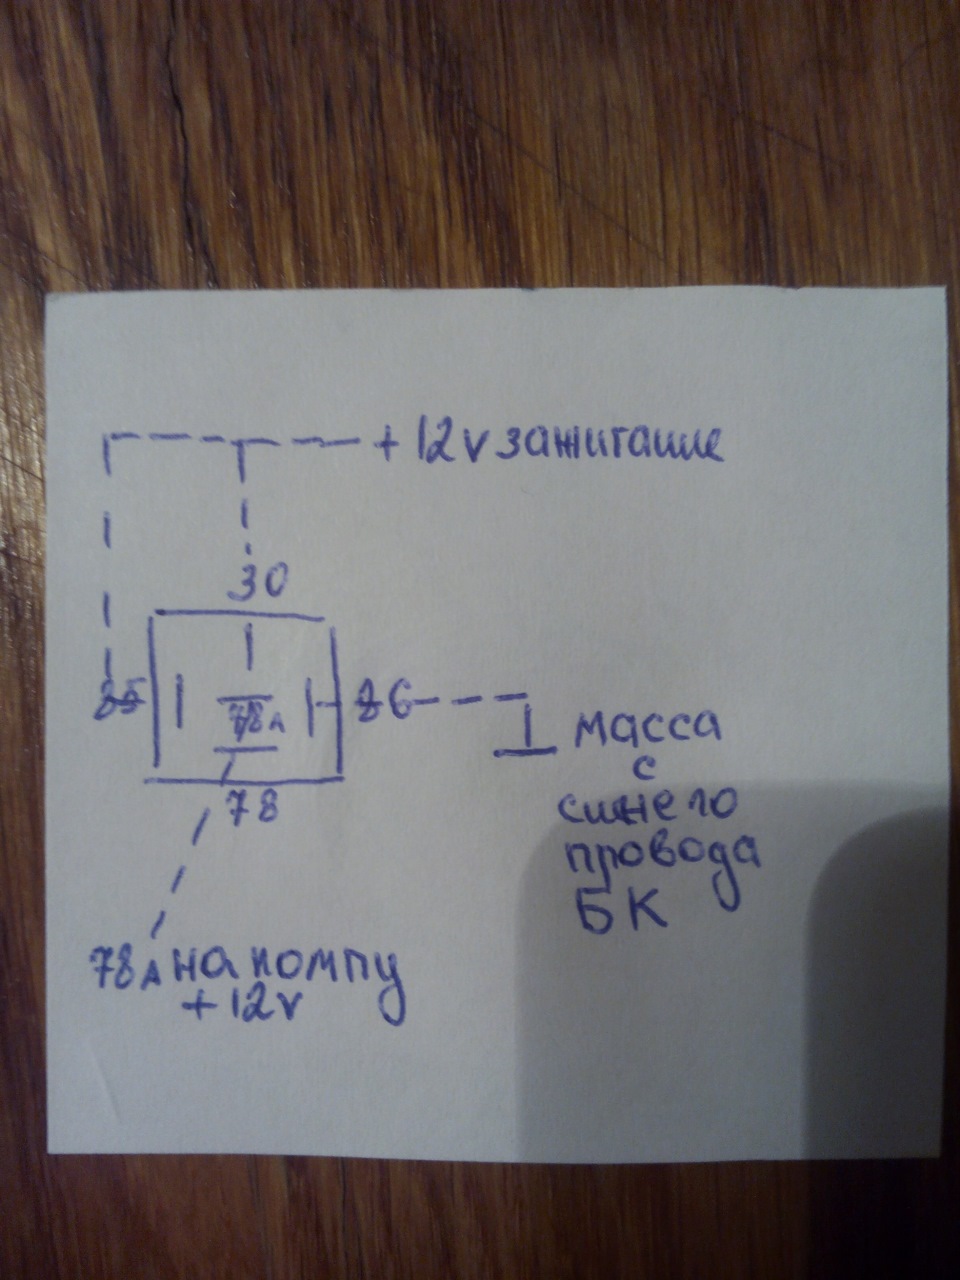 +12v зажигание
30
85
86
78А
78
масса
с
синего
провода
БК
78А на помпу
+12v